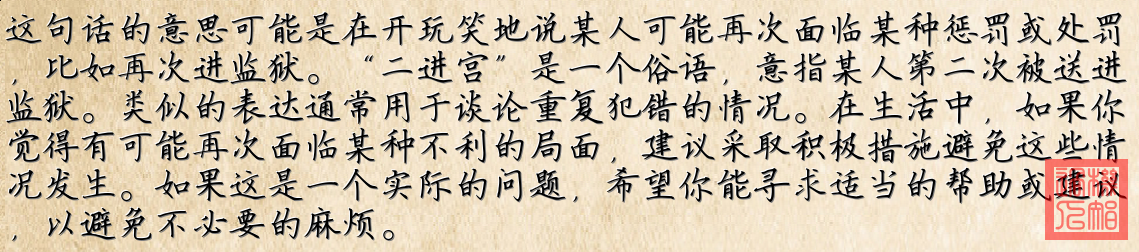 这句话的意思可能是在开玩笑地说某人可能再次面临某种惩罚或处罚
，比如再次进监狱。“二进宫”是一个俗语，意指某人第二次被送进
监狱。类似的表达通常用于谈论重复犯错的情况。在生活中，如果你
觉得有可能再次面临某种不利的局面，建议采取积极措施避免这些情
况发生。如果这是一个实际的问题，希望你能寻求适当的帮助或建议
，以避免不必要的麻烦。